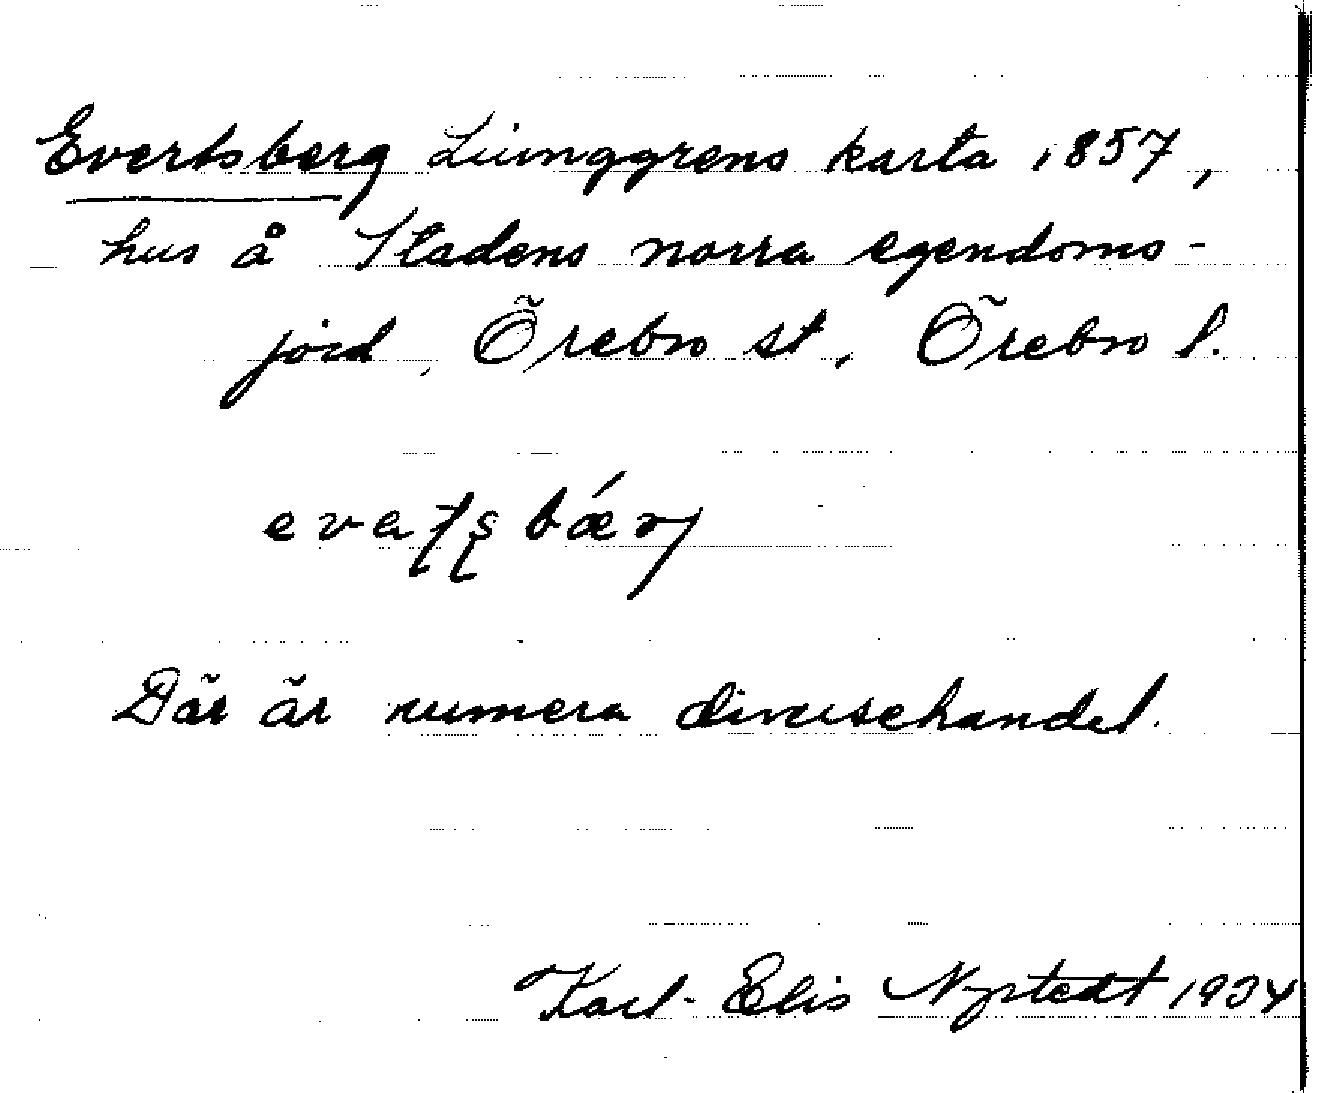 Evertsberg Liunggrens karta 1857,
hus å Stadens norra egendoms-
jord, Örebro st, Örebro l.
evaʈʂbǽrj
Där är numera diversehandel.
Karl-Elis Nystedt 1934